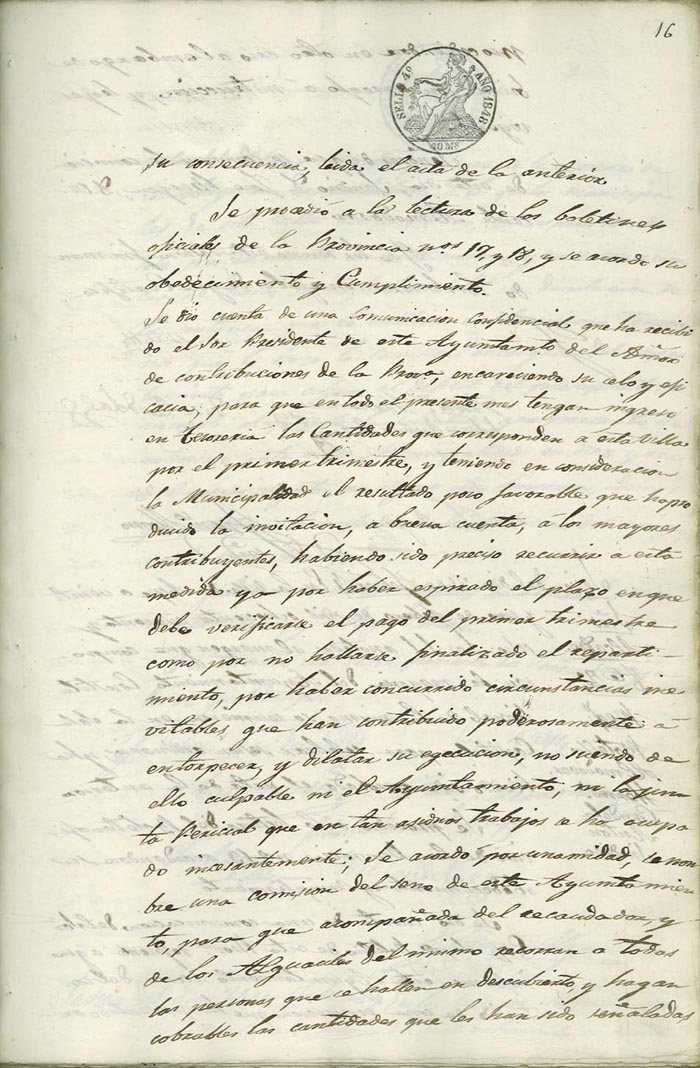 16
SELLO 4º AÑO 1848
40 Ms
su consecuencia, leida el acta de la anterior
Se procedió a la lectura de los boletines
oficiales de la Provincia nos 17, y 18, y se acordo su
obedecimiento y Cumplimiento.
Se dio cuenta de una Comunicacion Confidencial que ha recibi
do el Sor Presidente de este Ayuntamto del
de contribuciones de la Prova, encareciendo su celo y efi
cacia, para que en todo el presente mes tengan ingreso
en tesoreria las Cantidades que corresponden a esta Villa
por el primer trimestre, y teniendo en consideracion
la Municipalidad el resultado poco favorable que ha pro
ducido la invitacion, a buena cuenta, á los mayores
contribuyentes, habiendo sido preciso recurrir a esta
medida ya por haber espirado el plazo en que
debe verificarse el pago del primer trimestre
como por no hallarse finalizado el reparti-
miento, por haber concurrido circunstancias ine
vitables que han contribuido poderosamente á
entorpecer, y dilatar su egecucion, no siendo de
ello culpable ni el Ayuntamiento, ni la jun
ta Pericial que en tan asiduos trabajos se ha ocupa
do incesantemente; Se acordo por unamidad, se nom
bre una comision del seno de este Ayuntamien
to, para que acompañada del recaudador, y
de los Alguaciles del mismo recorran a todas
las personas que se hallen en descubierto y hagan
cobrables las cantidades que les han sido señaladas